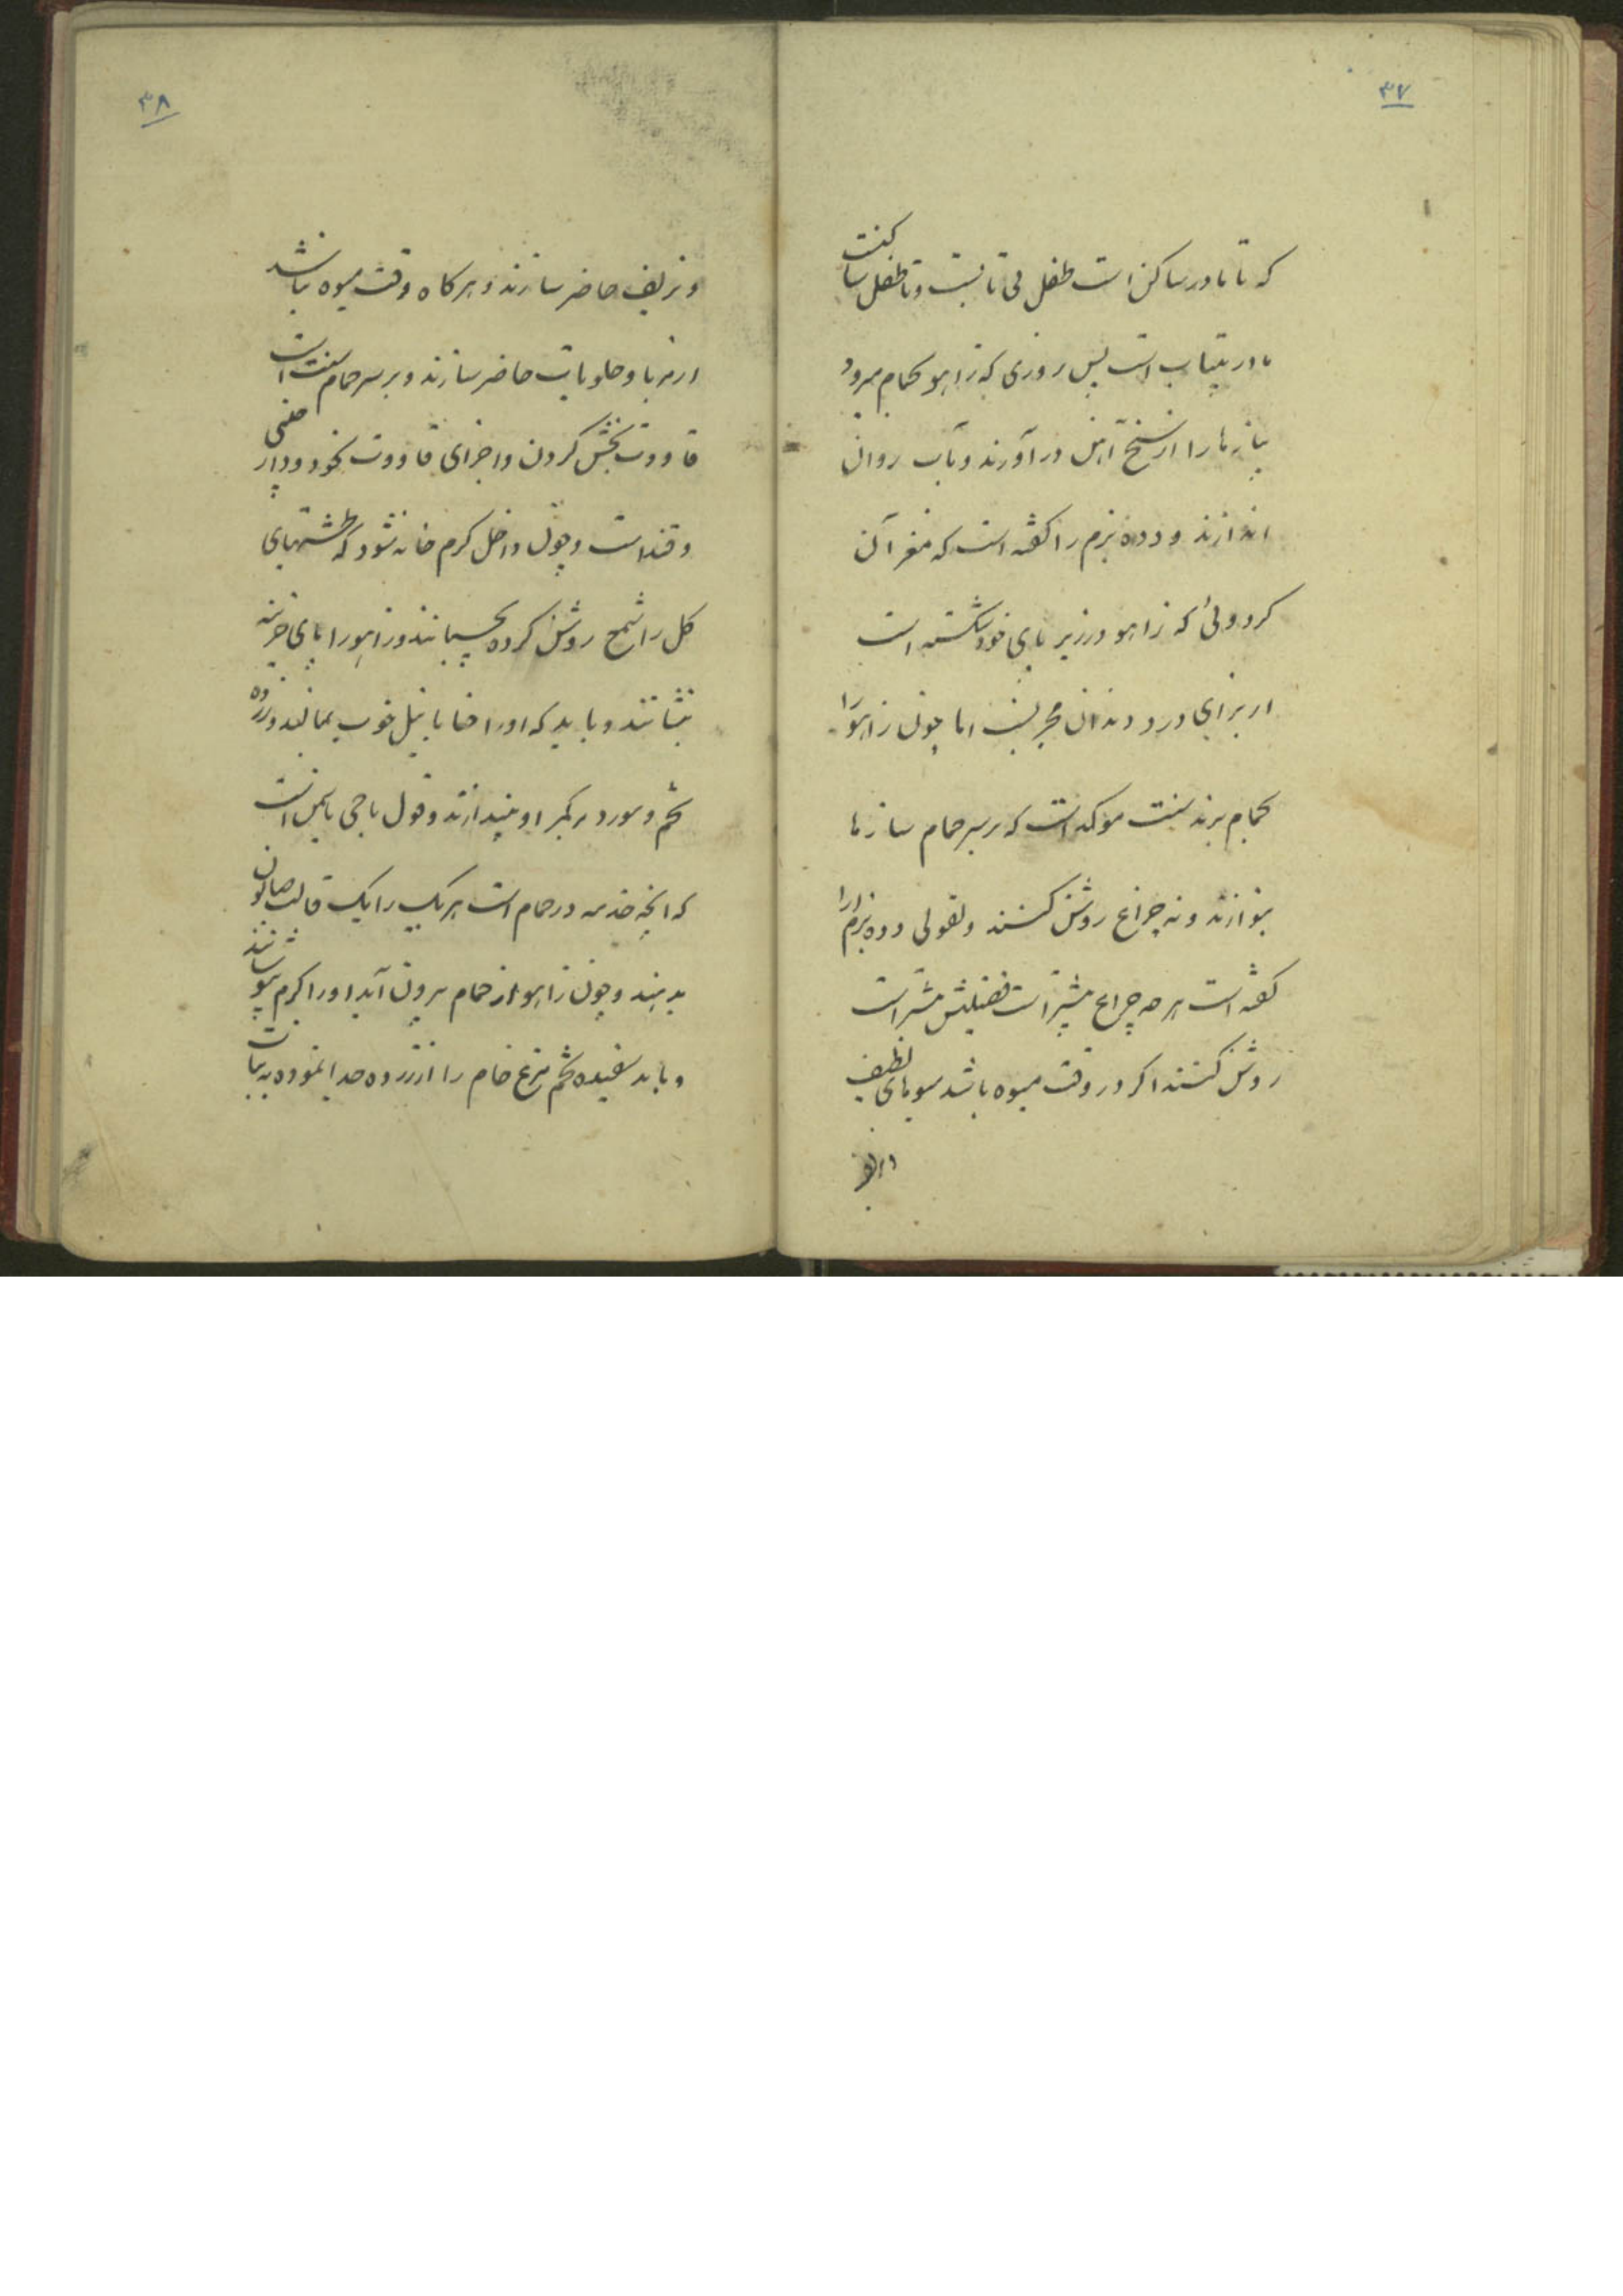 ۳۷
که تا مادر ساکن است طفل بی تابست و تا طفل ساکنست
مادر بیتاب است پس روزی که زاهو بحمام میرود
پیازها را از سیخ آهن در آورند و بآب روان
اندازند و دده بزم را گفته است که مغز آن
گردوئی که زاهو در زیر پای خود شکسته است
از برای درد دندان مجربست اما چون زاهو را
بحمام برند سنت موکد است که بر سر حمام سازها
بنوازند و نه چراغ روشن کنند و بقولی دده بزم آرا
گفته است هر چه چراغ بیشتر است فضیلتش بیشتر است
روشن کنند اگر در وقت میوه باشد میوهای لطیف
۳۸
و نظیف حاضر سازند و هرگاه وقت میوه نباشد
از مربا و حلویات حاضر سازند و بر سر حمام سنت است
قاووت بخش کردن و اجزای قاووت نخود و دارچینی
و قند است و چون داخل گرم خانه شود که طشتهای
گل را شمع روشن کرده بچسبانند و زاهو را پای خزینه
بنشانند و باید که او را حنا با نیل خوب بمالند و زرده
تخم و مورد بر کمر او بیندازند و قول باجی یاسمن است
که آنچه خدمه در حمام است هر یک را یک قالب صابون
بدهند و چون زاهو از حمام بیرون آید او را گرم بپوشانند
و باید سفیده تخم مرغ خام را از زرده جدا نموده به نبات